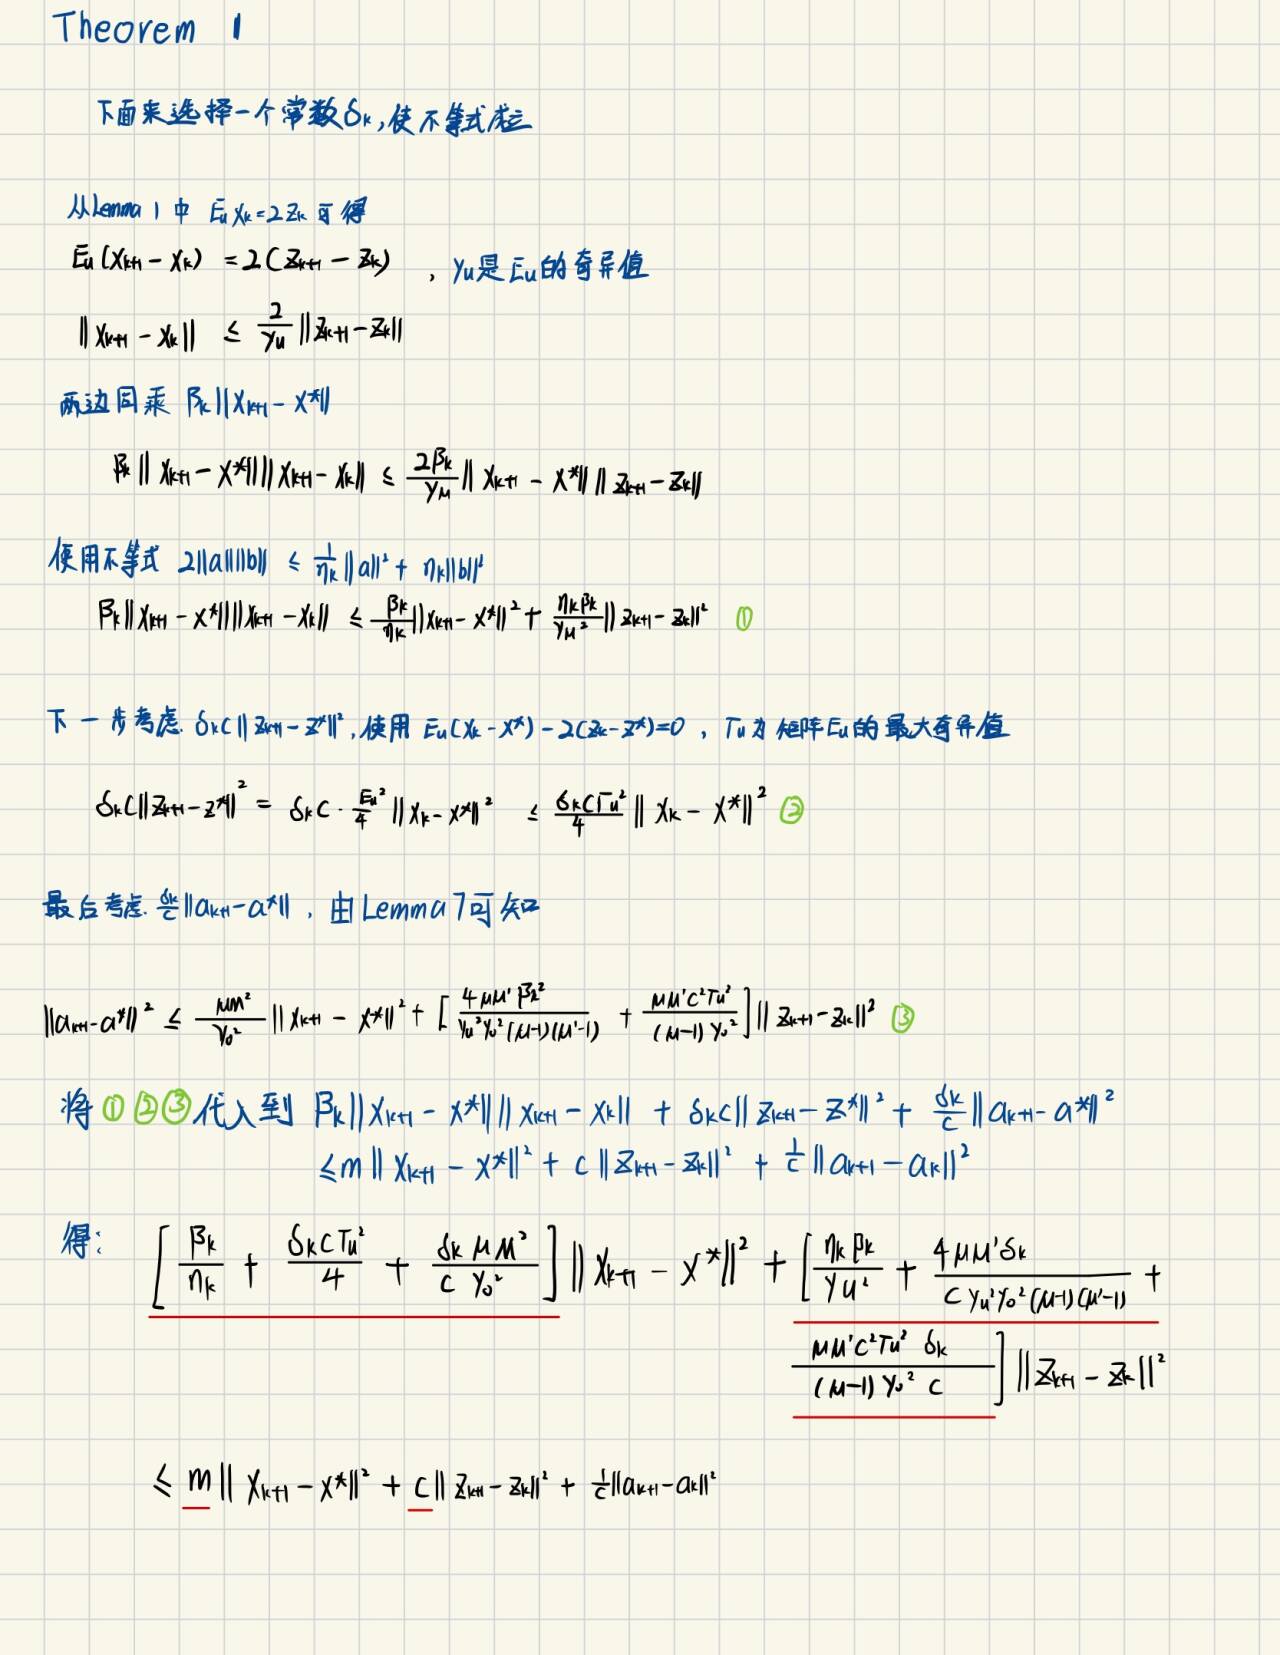 Theorem 1
下面来选择一个常数δk,使不等式成立
从Lemma 1 中 Eu Xk=2Zk 可得
Eu(Xk+1 - Xk) = 2(Zk+1 - Zk) , γu是Eu的奇异值
||Xk+1 - Xk|| ≤ 2/γu ||Zk+1 - Zk||
两边同乘 βk||Xk+1 - X*||
βk||Xk+1 - X*|| ||Xk+1 - Xk|| ≤ 2βk/γμ ||Xk+1 - X*|| ||Zk+1 - Zk||
使用不等式 2||a||||b|| ≤ 1/ηk ||a||² + ηk||b||²
βk||Xk+1 - X*|| ||Xk+1 - Xk|| ≤ βk/ηk ||Xk+1 - X*||² + ηkβk/γμ² ||Zk+1 - Zk||² ①
下一步考虑. δkC||Zk+1 - Z*||², 使用 Eu(Xk - X*) - 2(Zk - Z*)=0 , Γu为矩阵Eu的最大奇异值
δkC||Zk+1 - Z*||² = δkC · Eu²/4 ||Xk - X*||² ≤ δkCΓu²/4 ||Xk - X*||² ②
最后考虑. δk/c ||ak+1 - a*|| , 由Lemma 7可知
||ak+1 - a*||² ≤ μM²/γo² ||Xk+1 - X*||² + [4μμ'βk²/γu²γo²(μ-1)(μ'-1) + μμ'c²Γu²/(μ-1)γo²] ||Zk+1 - Zk||² ③
将①②③代入到 βk||Xk+1 - X*|| ||Xk+1 - Xk|| + δkc||Zk+1 - Z*||² + δk/c ||ak+1 - a*||²
≤m||Xk+1 - X*||² + c||Zk+1 - Zk||² + 1/c ||ak+1 - ak||²
得: [βk/ηk + δkcΓu²/4 + δkμM²/cγo²] ||Xk+1 - X*||² + [ηkβk/γu² + 4μμ'δk/cγu²γo²(μ-1)(μ'-1) +
μμ'c²Γu²δk/(μ-1)γo²c] ||Zk+1 - Zk||²
≤ m||Xk+1 - X*||² + c||Zk+1 - Zk||² + 1/c ||ak+1 - ak||²